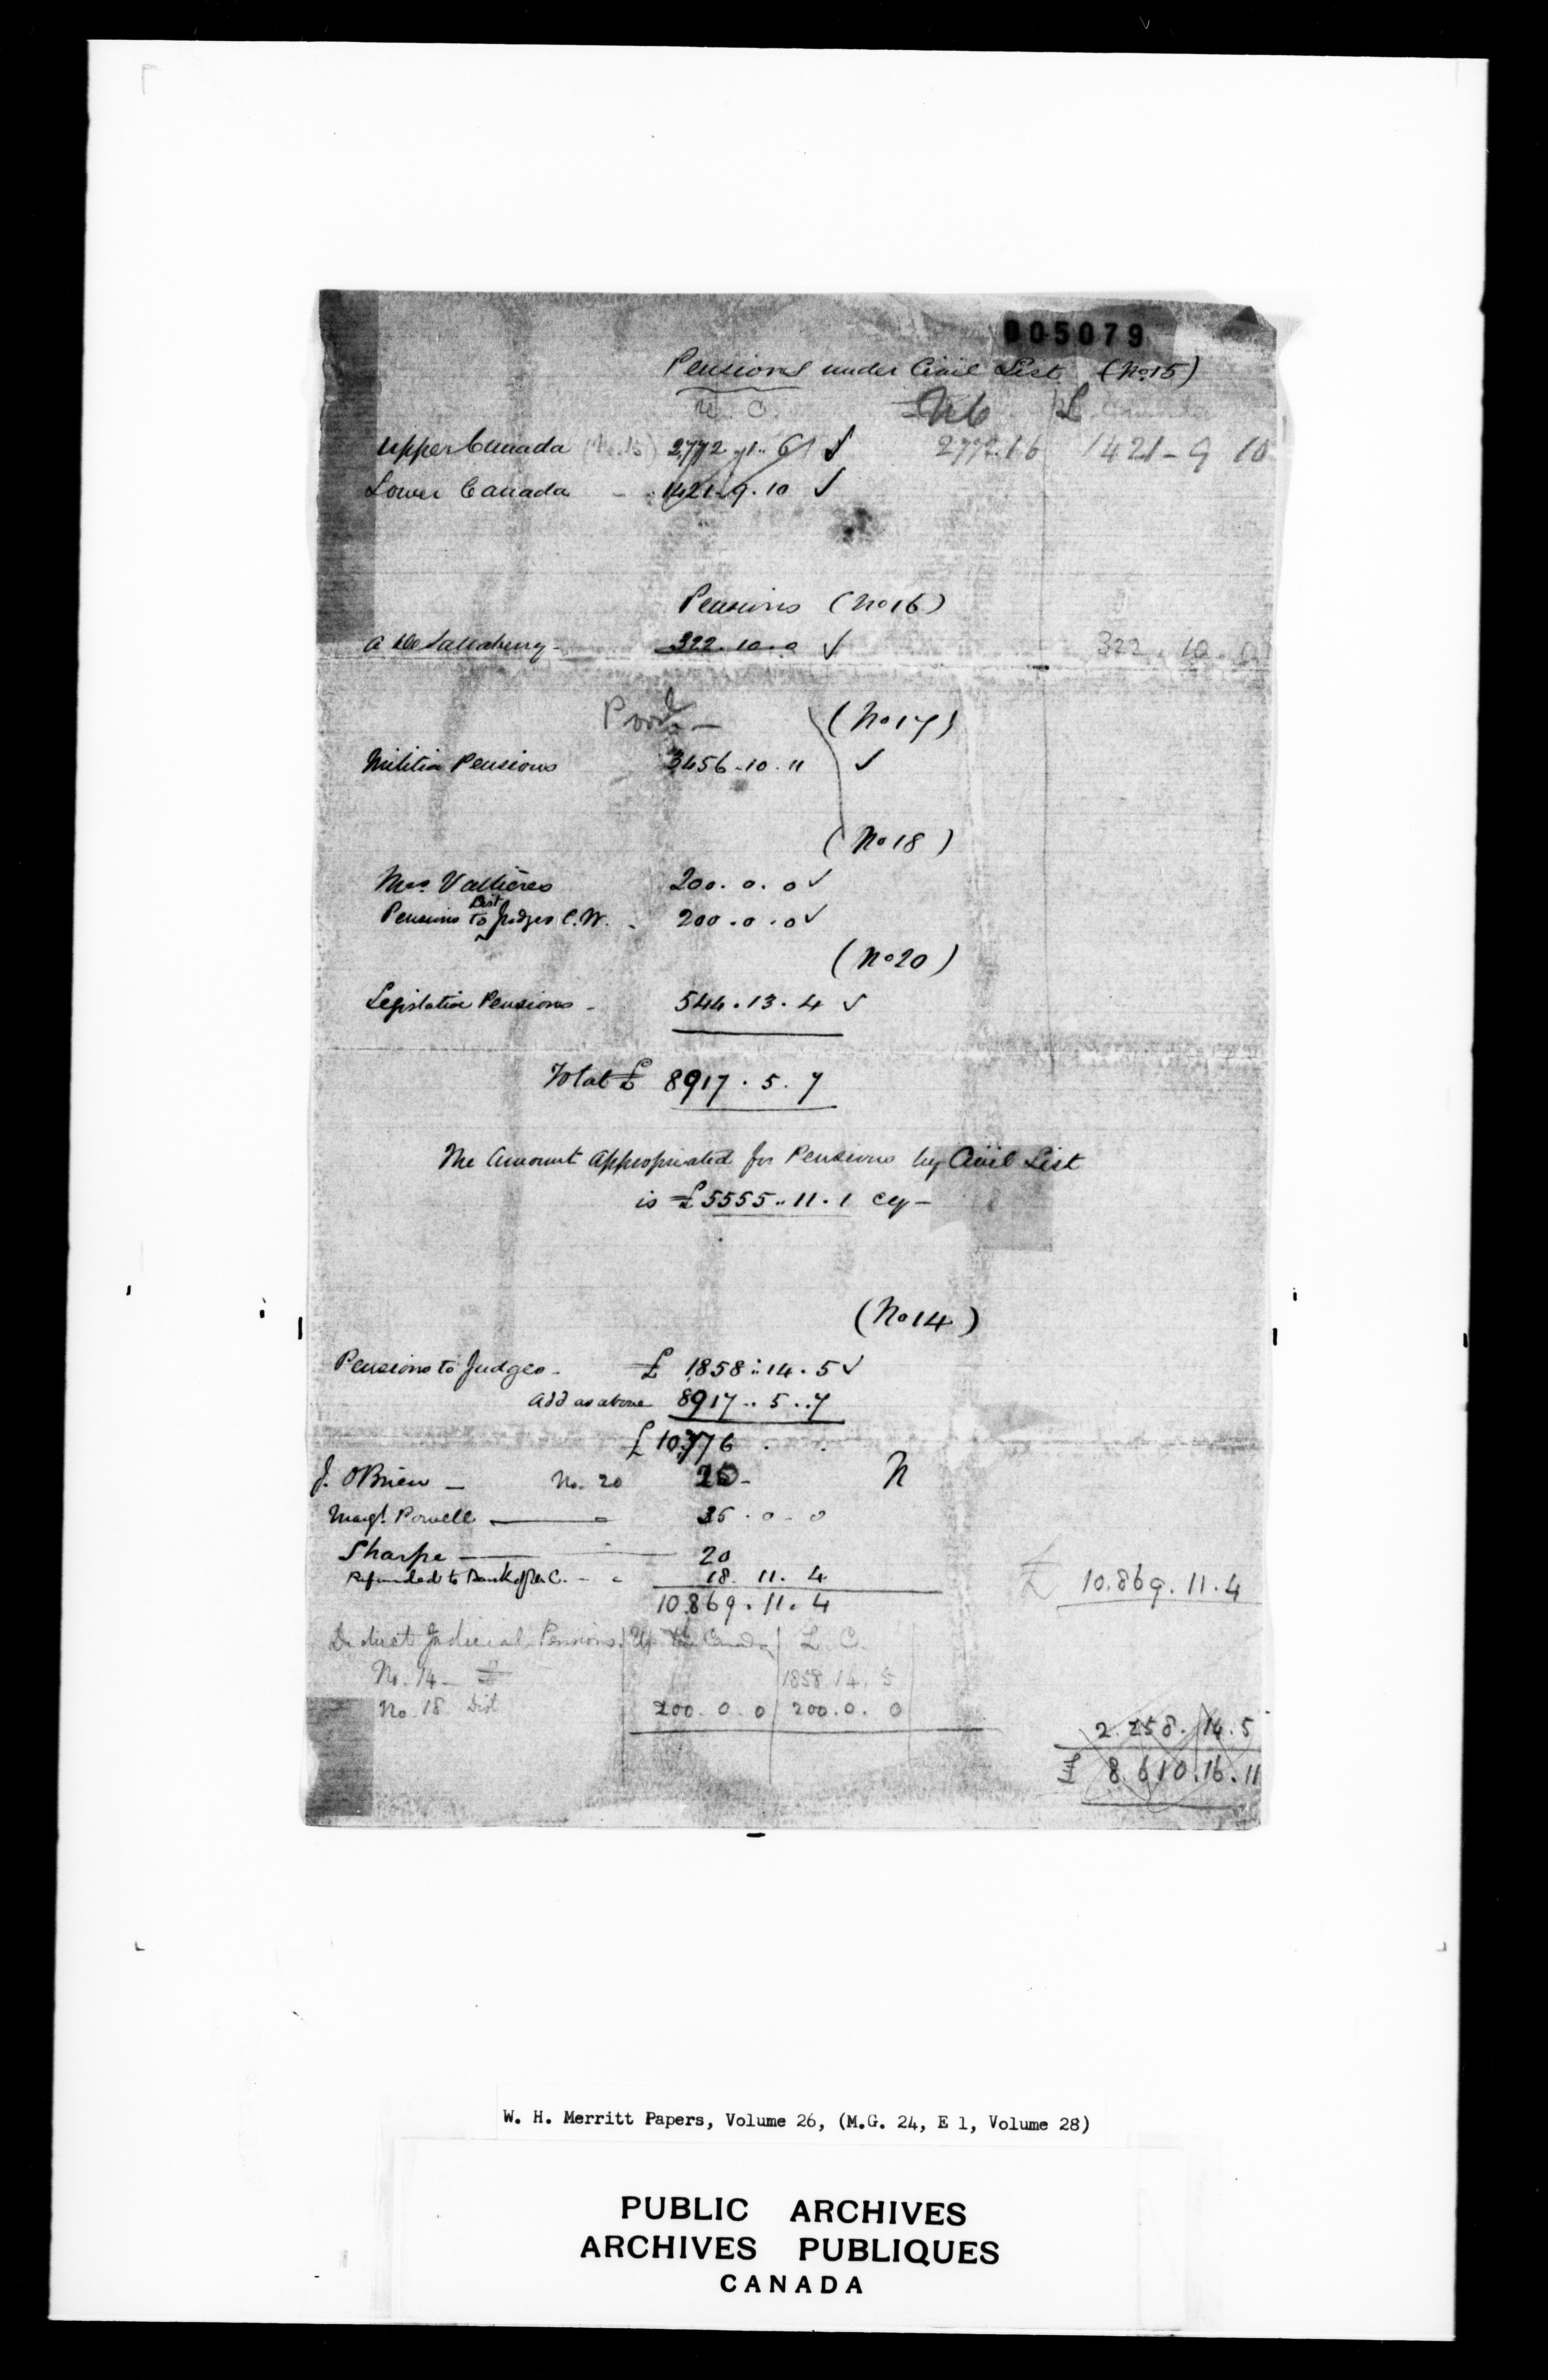 005079
Pensions under Civil List (No 15)
U. C.
Upper Canada (No. 15) 2772..1..6 ✓ 2772.1.6 1421-9 10
Lower Canada - 1421.9.10 ✓
Pensions (No 16)
A De Sallaberry - 322.10.0 ✓ 322.10.0
(No 17)
Militia Pensions 3456.10.11 ✓
(No 18)
Mrs. Vallières 200.0.0 ✓
Pensions to Dist Judges C.W. 200.0.0 ✓
(No 20)
Legislative Pensions - 544.13.4 ✓
Total £ 8917.5.7
The Amount Appropriated for Pensions by Civil List
is £5555..11.1 Cy -
(No 14)
Pensions to Judges - £ 1858..14.5 ✓
Add as above 8917..5..7
£ 10776 . .
J. OBrien - No. 20 - N
Margt. Powell 25.0-0
Sharpe 20
Refunded to Bank of U.C. - 18.11.4
10.869.11.4 £ 10.869.11.4
Deduct Judicial Pensions. Up Canada L. C.
No. 14 - £ 1858.14.5
No. 18 Dist 200.0.0 200.0.0
2.258.14.5
8.610.16.11
W. H. Merritt Papers, Volume 26, (M.G. 24, E 1, Volume 28)
PUBLIC ARCHIVES
ARCHIVES PUBLIQUES
CANADA